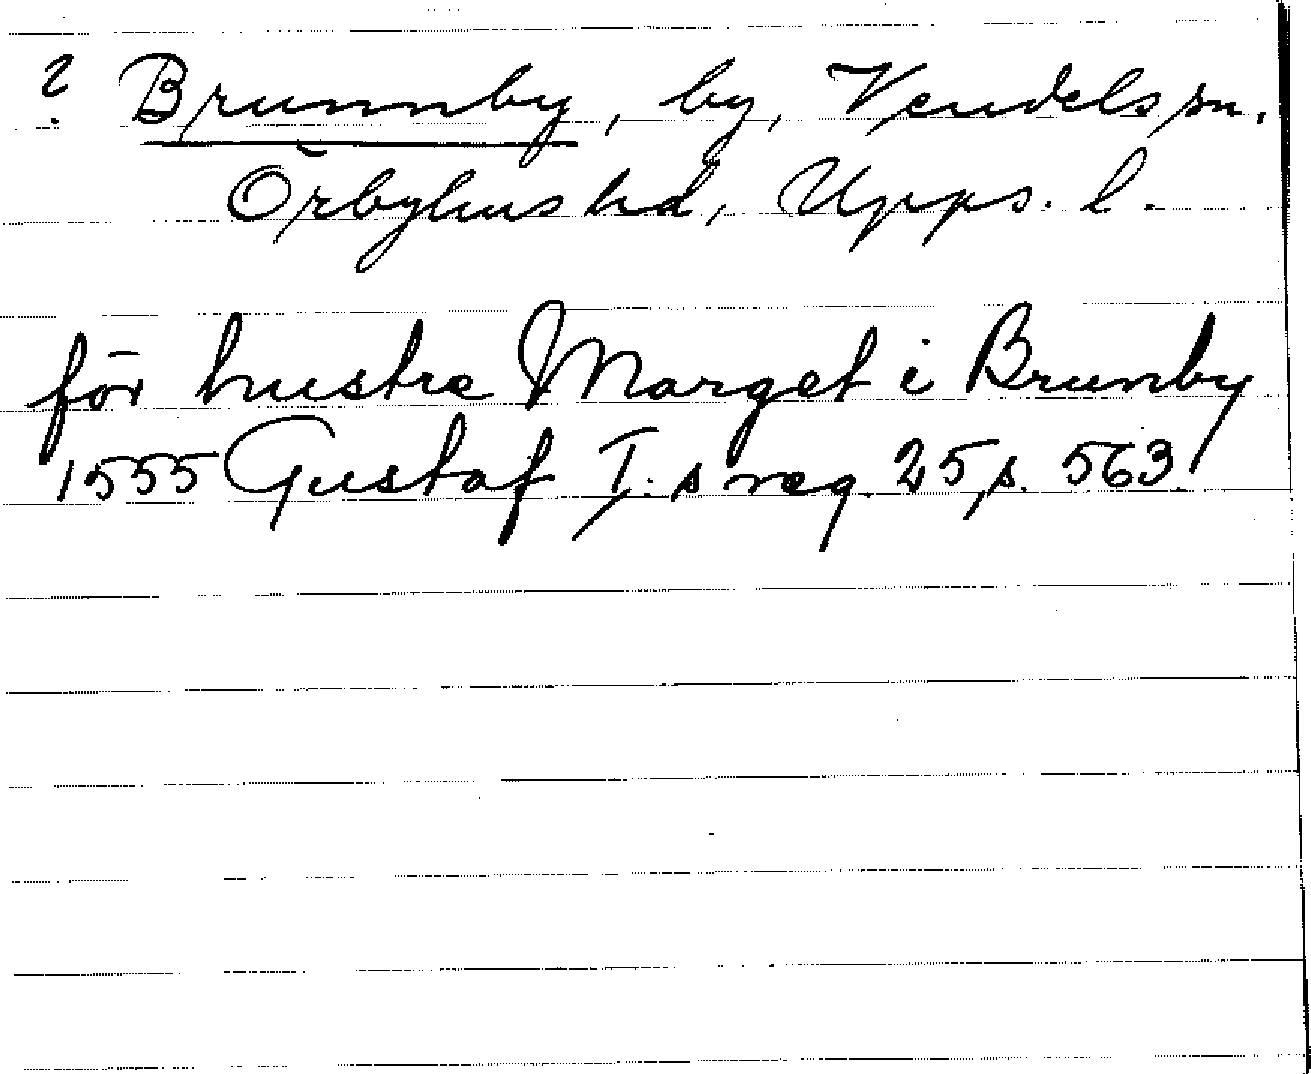 ? Brunnby, by, Vendels sn.
Örbyhus hd, Upps. l.
för hustro Marget i Brunby
1555 Gustaf I:s reg. 25, s. 563.